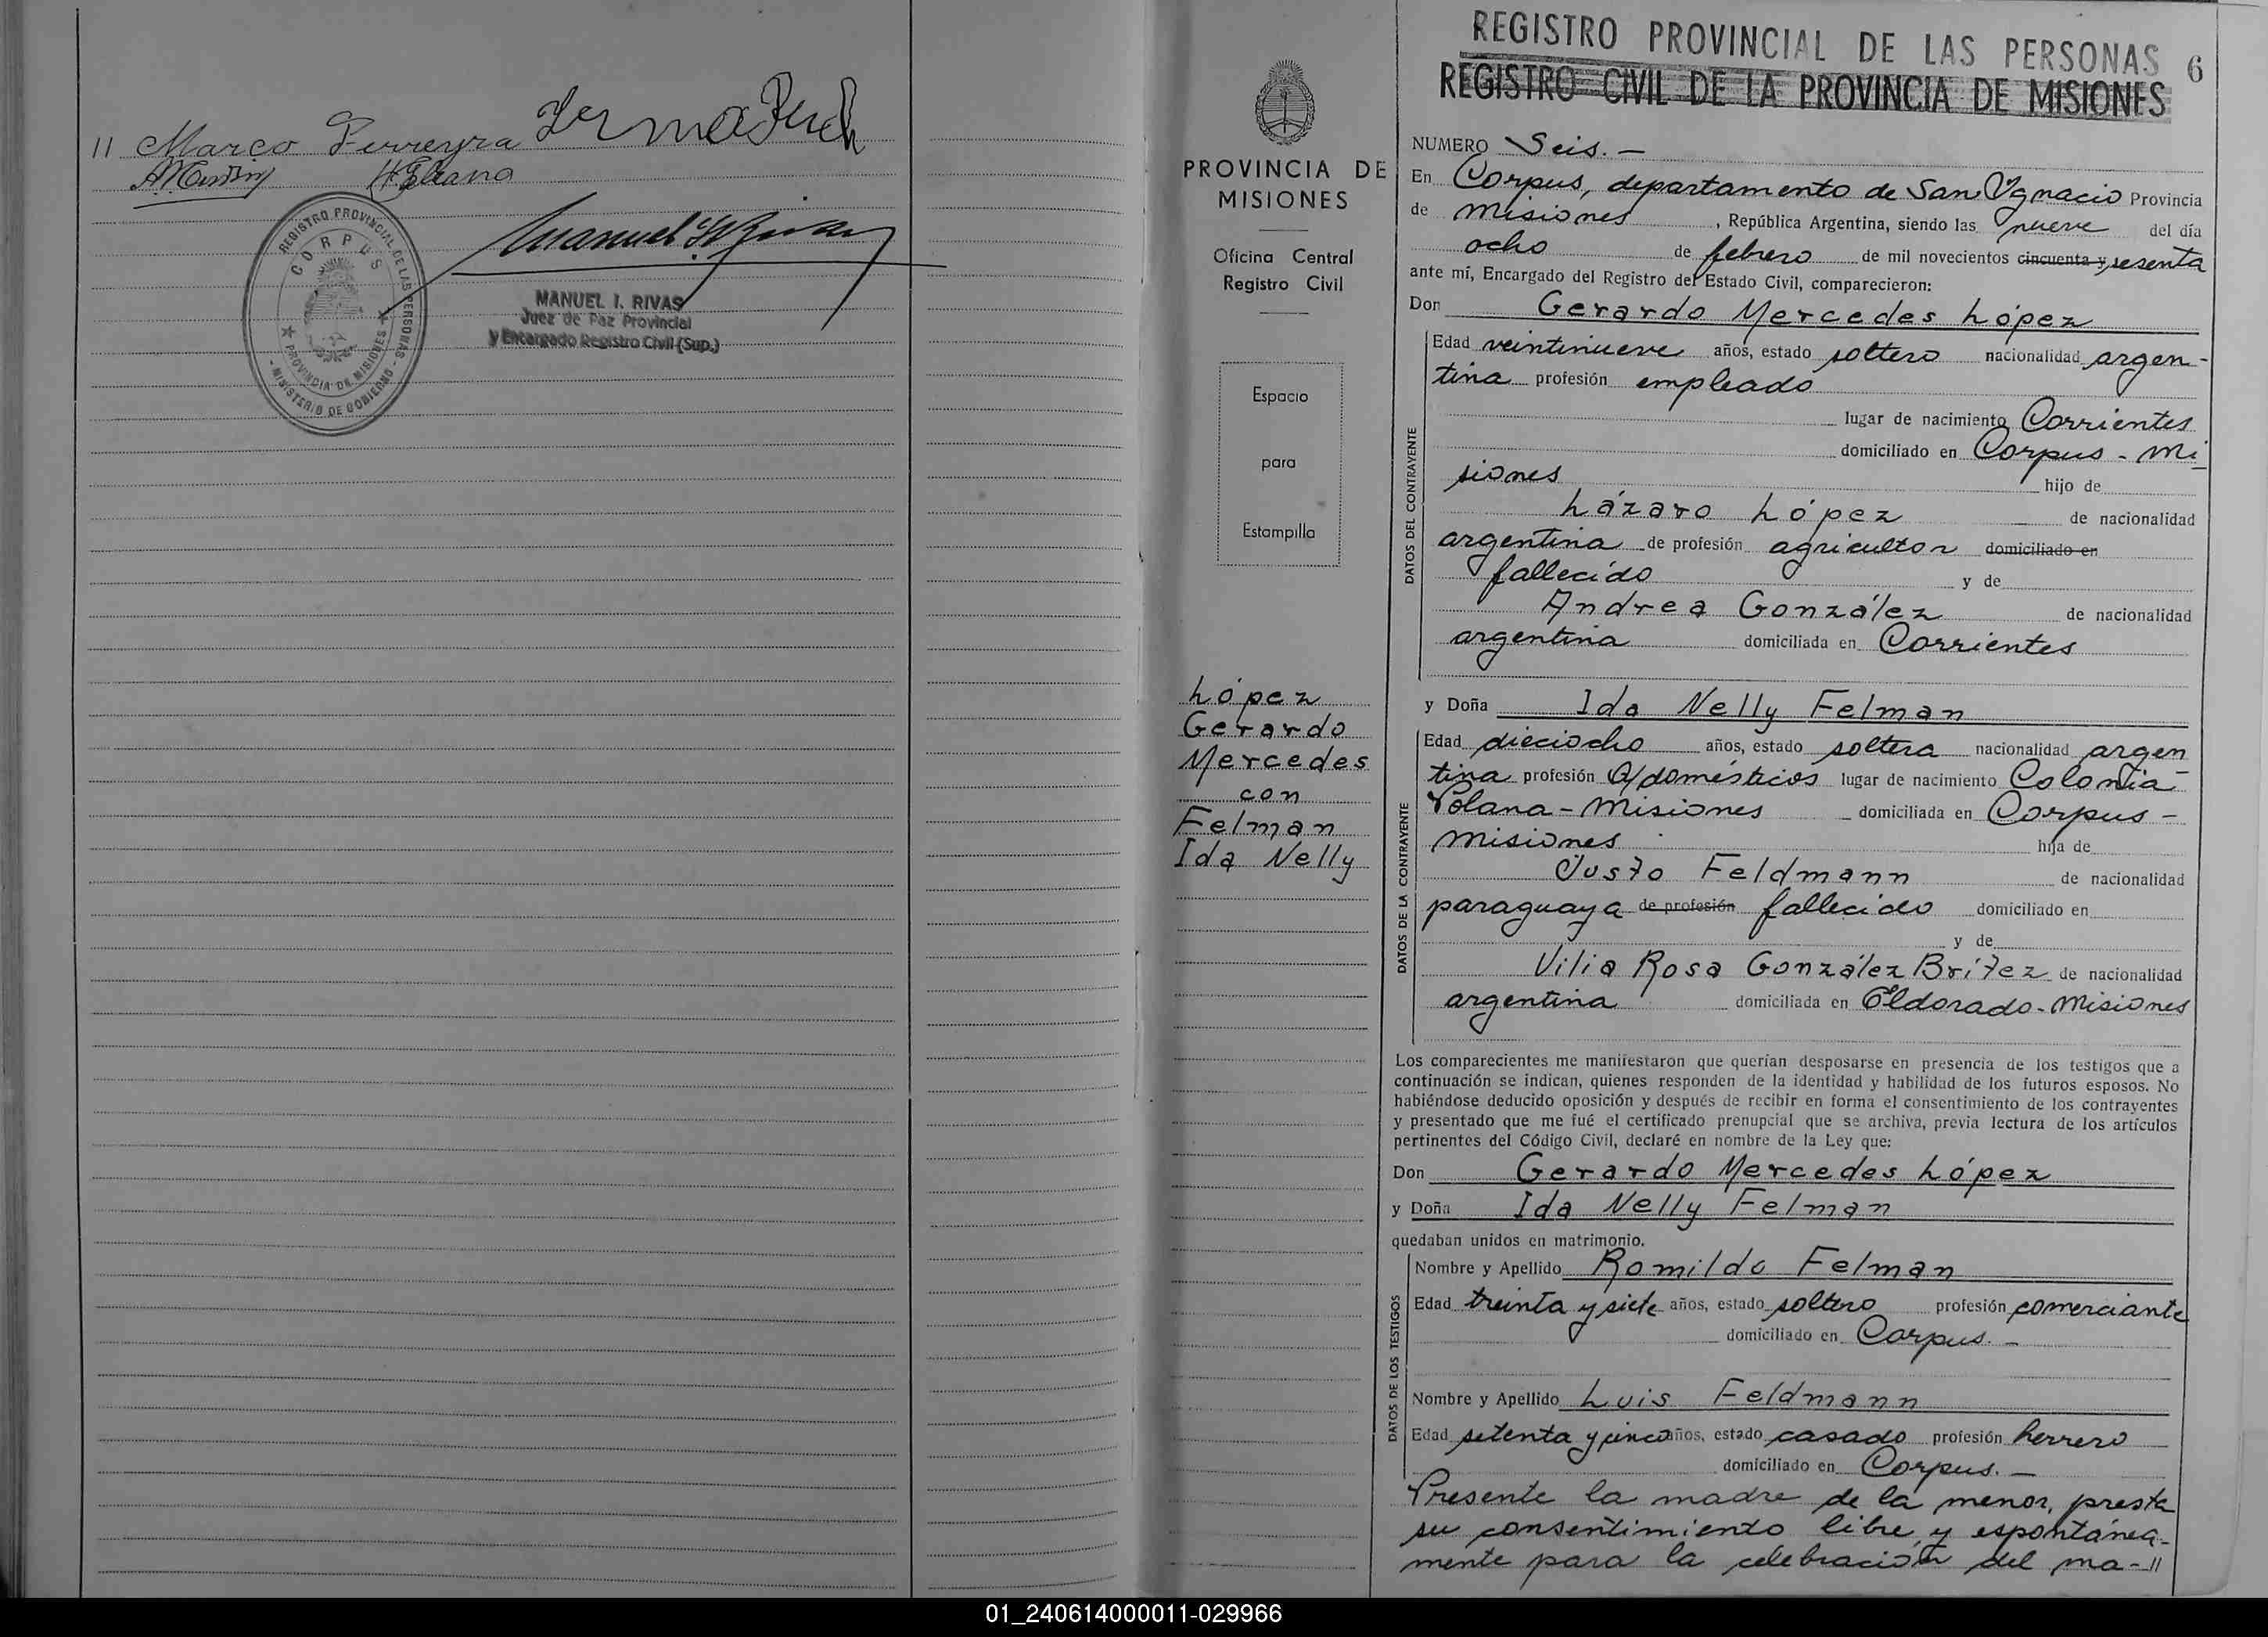 11 Marco Ferreyra
REGISTRO PROVINCIAL DE LAS PERSONAS
CORPUS
PROVINCIA DE MISIONES
- MINISTERIO DE GOBIERNO -
MANUEL I. RIVAS
Juez de Paz Provincial
y Encargado Registro Civil (Sup.)
PROVINCIA DE
MISIONES
Oficina Central
Registro Civil
Espacio
para
Estampilla
López
Gerardo
Mercedes
con
Felman
Ida Nelly
REGISTRO PROVINCIAL DE LAS PERSONAS
6
REGISTRO CIVIL DE LA PROVINCIA DE MISIONES
NUMERO Seis. —
En Corpus, departamento de San Ygnacio Provincia
de Misiones, República Argentina, siendo las nueve del día
ocho de febrero de mil novecientos cincuenta y sesenta
ante mí, Encargado del Registro del Estado Civil, comparecieron:
Don Gerardo Mercedes López
DATOS DEL CONTRAYENTE
Edad veintinueve años, estado soltero nacionalidad argen-
tina profesión empleado
lugar de nacimiento Corrientes
domiciliado en Corpus - Mi
siones hijo de
Lázaro López de nacionalidad
argentina de profesión agricultor domiciliado en
fallecido y de
Andrea González de nacionalidad
argentina domiciliada en Corrientes
y Doña Ida Nelly Felman
DATOS DE LA CONTRAYENTE
Edad dieciocho años, estado soltera nacionalidad argen
tina profesión Q/domésticos lugar de nacimiento Colonia
Polana - Misiones domiciliada en Corpus -
Misiones hija de
Justo Feldmann de nacionalidad
paraguaya de profesión fallecido domiciliado en
y de
Vilia Rosa González Brítez de nacionalidad
argentina domiciliada en Eldorado - Misiones
Los comparecientes me manifestaron que querían desposarse en presencia de los testigos que a
continuación se indican, quienes responden de la identidad y habilidad de los futuros esposos. No
habiéndose deducido oposición y después de recibir en forma el consentimiento de los contrayentes
y presentado que me fué el certificado prenupcial que se archiva, previa lectura de los artículos
pertinentes del Código Civil, declaré en nombre de la Ley que:
Don Gerardo Mercedes López
y Doña Ida Nelly Felman
quedaban unidos en matrimonio.
DATOS DE LOS TESTIGOS
Nombre y Apellido Romildo Felman
Edad treinta y siete años, estado soltero profesión comerciante
domiciliado en Corpus. —
Nombre y Apellido Luis Feldmann
Edad setenta y cinco años, estado casado profesión herrero
domiciliado en Corpus. —
Presente la madre de la menor, presta
su consentimiento libre y espontánea-
mente para la celebración del ma-11
01_240614000011-029966